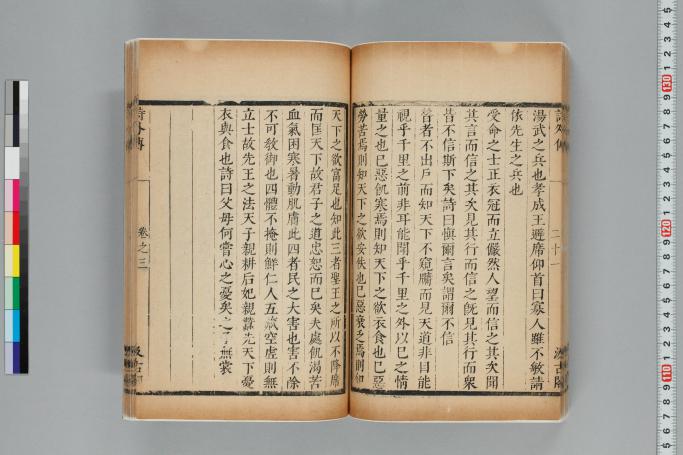 湯武之兵也孝成王避席仰首曰寡人雖不敏請
依先生之兵也
受命之士正衣冠而立儼然人望而信之其次聞
其言而信之其次見其行而信之既見其行而衆
皆不信斯下矣詩曰慎爾言矣謂爾不信
昔者不出戶而知天下不窺牖而見天道非目能
視乎千里之前非耳能聞乎千里之外以己之情
量之也己惡飢寒焉則知天下之欲衣食也己惡
勞苦焉則知天下之欲安佚也己惡衰乏焉則知
天下之欲富足也知此三者聖王之所以不降席
而匡天下故君子之道忠恕而已矣夫處飢渴苦
血氣困寒暑動肌膚此四者民之大害也害不除
不可敎御也四體不掩則鮮仁人五藏空虛則無
立士故先王之法天子親耕后妃親蠶先天下憂
衣與食也詩曰父母何嘗心之憂矣之子無裳
詩外傳
卷之三
二十一
汲古閣